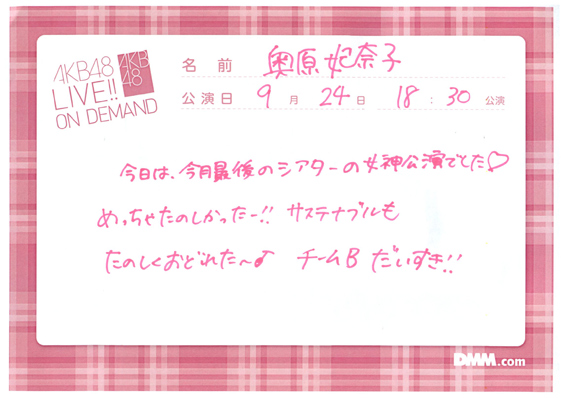 AKB48
LIVE!!
ON DEMAND
AKB
48
名前 奥原妃奈子
公演日 9月24日 18:30公演
今日は、今月最後のシアターの女神公演でした♡
めっちゃたのしかったー!! サステナブルも
たのしくおどれた〜♪ チームB だいすき!!
DMM.com